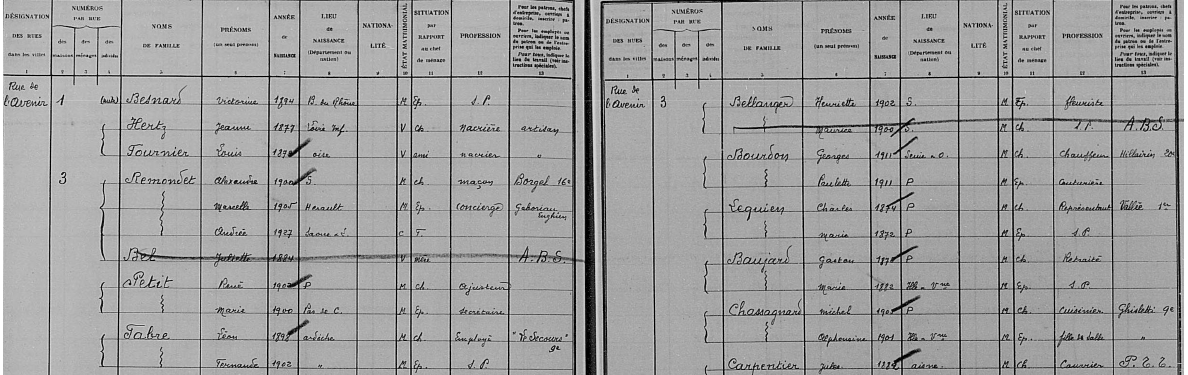 DÉSIGNATION DES RUES dans les villes | NUMÉROS PAR RUE des maisons | des ménages | des individus | NOMS DE FAMILLE | PRÉNOMS (un seul prénom) | ANNÉE de NAISSANCE | LIEU de NAISSANCE (Département ou nation) | NATIONALITÉ | ÉTAT MATRIMONIAL | SITUATION par RAPPORT au chef de ménage | PROFESSION | Pour les patrons, chefs d'entreprise, ouvriers à domicile, inscrire : patron. Pour les employés ou ouvriers, indiquer le nom du patron ou de l'entreprise qui les emploie. Pour tous, indiquer le lieu du travail (voir instructions spéciales).
1 2 3 4 5 6 7 8 9 10 11 12 13
Rue de l'Avenir 1 Besnard Victorine 1894 B. du Rhône M Ep. S.P.
Hertz Jeanne 1877 Loire Inf. V Ch. nacrière artisan
Tournier Louis oise V ami nacrier "
3 Remondet Alexandre 1900 S. M Ch. maçon Borgel 16e
Marcelle 1905 Herault M Ep. concierge Enghien
Andrée 1927 Saone & L. C F.
Bel Juliette 1884 V mère A.B.S.
Petit René P M Ch. ajusteur
Marie 1900 Pas de C. M Ep. secretaire
Fabre Léon 1898 ardèche M Ch. Employé "Le Secours" 9e
Fernande 1902 " M Ep. S.P.
DÉSIGNATION DES RUES dans les villes | NUMÉROS PAR RUE des maisons | des ménages | des individus | NOMS DE FAMILLE | PRÉNOMS (un seul prénom) | ANNÉE de NAISSANCE | LIEU de NAISSANCE (Département ou nation) | NATIONALITÉ | ÉTAT MATRIMONIAL | SITUATION par RAPPORT au chef de ménage | PROFESSION | Pour les patrons, chefs d'entreprise, ouvriers à domicile, inscrire : patron. Pour les employés ou ouvriers, indiquer le nom du patron ou de l'entreprise qui les emploie. Pour tous, indiquer le lieu du travail (voir instructions spéciales).
1 2 3 4 5 6 7 8 9 10 11 12 13
Rue de l'Avenir 3 Bellanger Henriette 1902 S. M Ep. fleuriste
Maurice 1900 S. M Ch. S.P. A.B.S.
Bourdon Georges 1911 Seine & O. M Ch. Chauffeur
Paulette 1911 P M Ep. Couturière
Lequien Charles 1874 P M Ch. Représentant Vallée 1er
Marie 1872 P M Ep. S.P.
Baujard Gaston P M Ch. Retraité
Marie 1882 Ille & Vne M Ep. S.P.
Chassagnard michel P M Ch. cuisinier Ghisletti 9e
Alphonsine 1901 Ille & Vne M Ep. fille de salle "
Carpentier Jules aisne M Ch. Couvrier P.T.T.